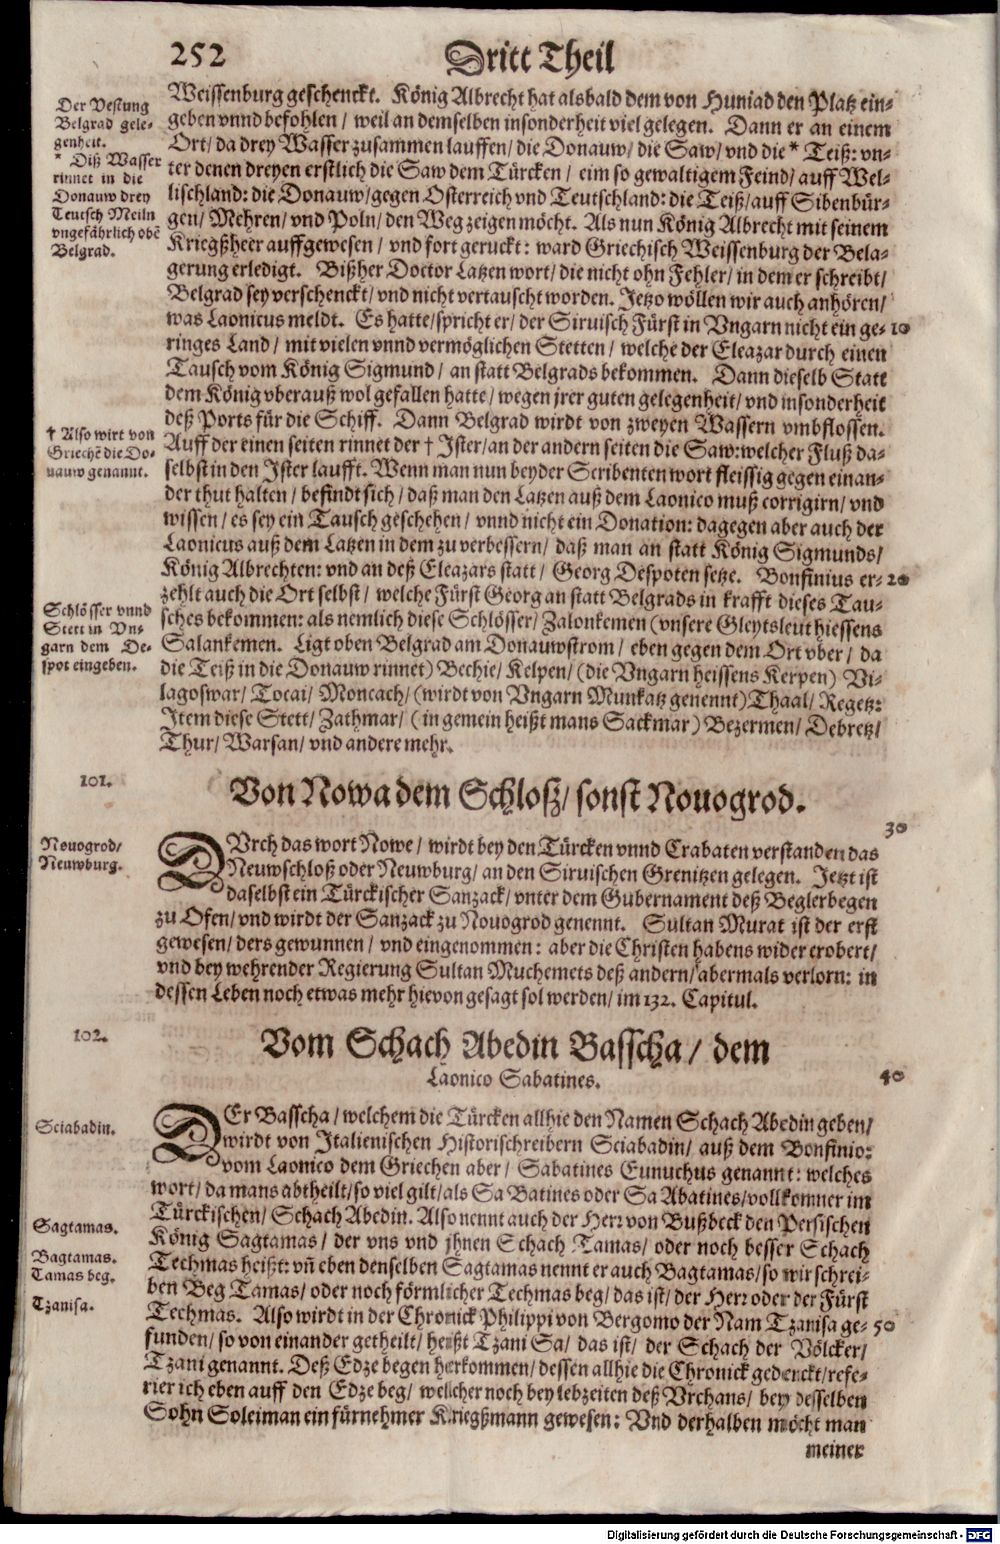 252
Dritt Theil
Weissenburg geschenckt. König Albrecht hat alsbald dem von Huniad den Platz ein-
geben vnnd befohlen / weil an demselben insonderheit viel gelegen. Dann er an einem
Ort / da drey Wasser zusammen lauffen / die Donauw / die Saw / vnd die * Teiß: vn-
ter denen dreyen erstlich die Saw dem Türcken / eim so gewaltigem Feind / auff Wel-
lischland: die Donauw / gegen Osterreich vnd Teutschland: die Teiß / auff Sibenbür-
gen / Mehren / vnd Poln / den Weg zeigen möcht. Als nun König Albrecht mit seinem
Kriegßheer auffgewesen / vnd fort geruckt: ward Griechisch Weissenburg der Bela-
gerung erledigt. Bißher Doctor Latzen wort / die nicht ohn Fehler / in dem er schreibt /
Belgrad sey verschenckt / vnd nicht vertauscht worden. Jetzo wöllen wir auch anhören /
was Laonicus meldt. Es hatte / spricht er / der Siruisch Fürst in Vngarn nicht ein ge- 10
ringes Land / mit vielen vnnd vermöglichen Stetten / welche der Eleazar durch einen
Tausch vom König Sigmund / an statt Belgrads bekommen. Dann dieselb Statt
dem König vberauß wol gefallen hatte / wegen jrer guten gelegenheit / vnd insonderheit
deß Ports für die Schiff. Dann Belgrad wirdt von zweyen Wassern vmbflossen.
Auff der einen seiten rinnet der † Ister / an der andern seiten die Saw: welcher Fluß da-
selbst in den Ister laufft. Wenn man nun beyder Scribenten wort fleissig gegen einan-
der thut halten / befindt sich / daß man den Latzen auß dem Laonico muß corrigirn / vnd
wissen / es sey ein Tausch geschehen / vnnd nicht ein Donation: dagegen aber auch der
Laonicus auß dem Latzen in dem zu verbessern / daß man an statt König Sigmunds /
König Albrechten: vnd an deß Eleazars statt / Georg Despoten setze. Bonfinius er- 20
zehlt auch die Ort selbst / welche Fürst Georg an statt Belgrads in krafft dieses Tau-
sches bekommen: als nemlich diese Schlösser / Zalonkemen (vnsere Gleytsleut hiessens
Salankemen. Ligt oben Belgrad am Donauwstrom / eben gegen dem Ort vber / da
die Teiß in die Donauw rinnet) Bechie / Kelpen / (die Vngarn heissens Kerpen) Vi-
lagoswar / Tocai / Moncach / (wirdt von Vngarn Munkatz genennt) Thaal / Regetz:
Item diese Stett / Zathmar / (in gemein heißt mans Sackmar) Bezermen / Debretz /
Thur / Warsan / vnd andere mehr.
Der Vestung
Belgrad gele-
genheit.
* Diß Wasser
rinnet in die
Donauw drey
Teutsch Meiln
vngefährlich obē
Belgrad.
† Also wirt von
Griechē die Do-
nauw genannt.
Schlösser vnnd
Stett in Vn-
garn dem De-
spot eingeben.
101.
Von Nowa dem Schloß / sonst Nouogrod.
30
Nouogrod /
Neuwburg.
DVrch das wort Nowe / wirdt bey den Türcken vnnd Crabaten verstanden das
Neuwschloß oder Neuwburg / an den Siruischen Grenitzen gelegen. Jetzt ist
daselbst ein Türckischer Sanzack / vnter dem Gubernament deß Beglerbegen
zu Ofen / vnd wirdt der Sanzack zu Nouogrod genennt. Sultan Murat ist der erst
gewesen / ders gewunnen / vnd eingenommen: aber die Christen habens wider erobert /
vnd bey wehrender Regierung Sultan Muchemets deß andern / abermals verlorn: in
dessen Leben noch etwas mehr hievon gesagt sol werden / im 132. Capitul.
102.
Vom Schach Abedin Basscha / dem
Laonico Sabatines.
40
Sciabadin.
Sagtamas.
Bagtamas.
Tamas beg.
Tzanisa.
DEr Basscha / welchem die Türcken allhie den Namen Schach Abedin geben /
wirdt von Italienischen Historischreibern Sciabadin / auß dem Bonfinio:
vom Laonico dem Griechen aber / Sabatines Eunuchus genannt: welches
wort / da mans abtheilt / so viel gilt / als Sa Batines oder Sa Abatines / vollkomner im
Türckischen / Schach Abedin. Also nennt auch der Herr von Bußbeck den Persischen
König Sagtamas / der vns vnd jhnen Schach Tamas / oder noch besser Schach
Techmas heißt: vñ eben denselben Sagtamas nennt er auch Bagtamas / so wir schrei-
ben Beg Tamas / oder noch förmlicher Techmas beg / das ist / der Herr oder der Fürst
Techmas. Also wirdt in der Chronick Philippi von Bergomo der Nam Tzanisa ge- 50
funden / so von einander getheilt / heißt Tzani Sa / das ist / der Schach der Völcker /
Tzani genannt. Deß Edze begen herkommen / dessen allhie die Chronick gedenckt / refe-
rier ich eben auff den Edze beg / welcher noch bey lebzeiten deß Vrchans / bey desselben
Sohn Soleiman ein fürnehmer Kriegßmann gewesen: Vnd derhalben möcht man
meiner
Digitalisierung gefördert durch die Deutsche Forschungsgemeinschaft - DFG